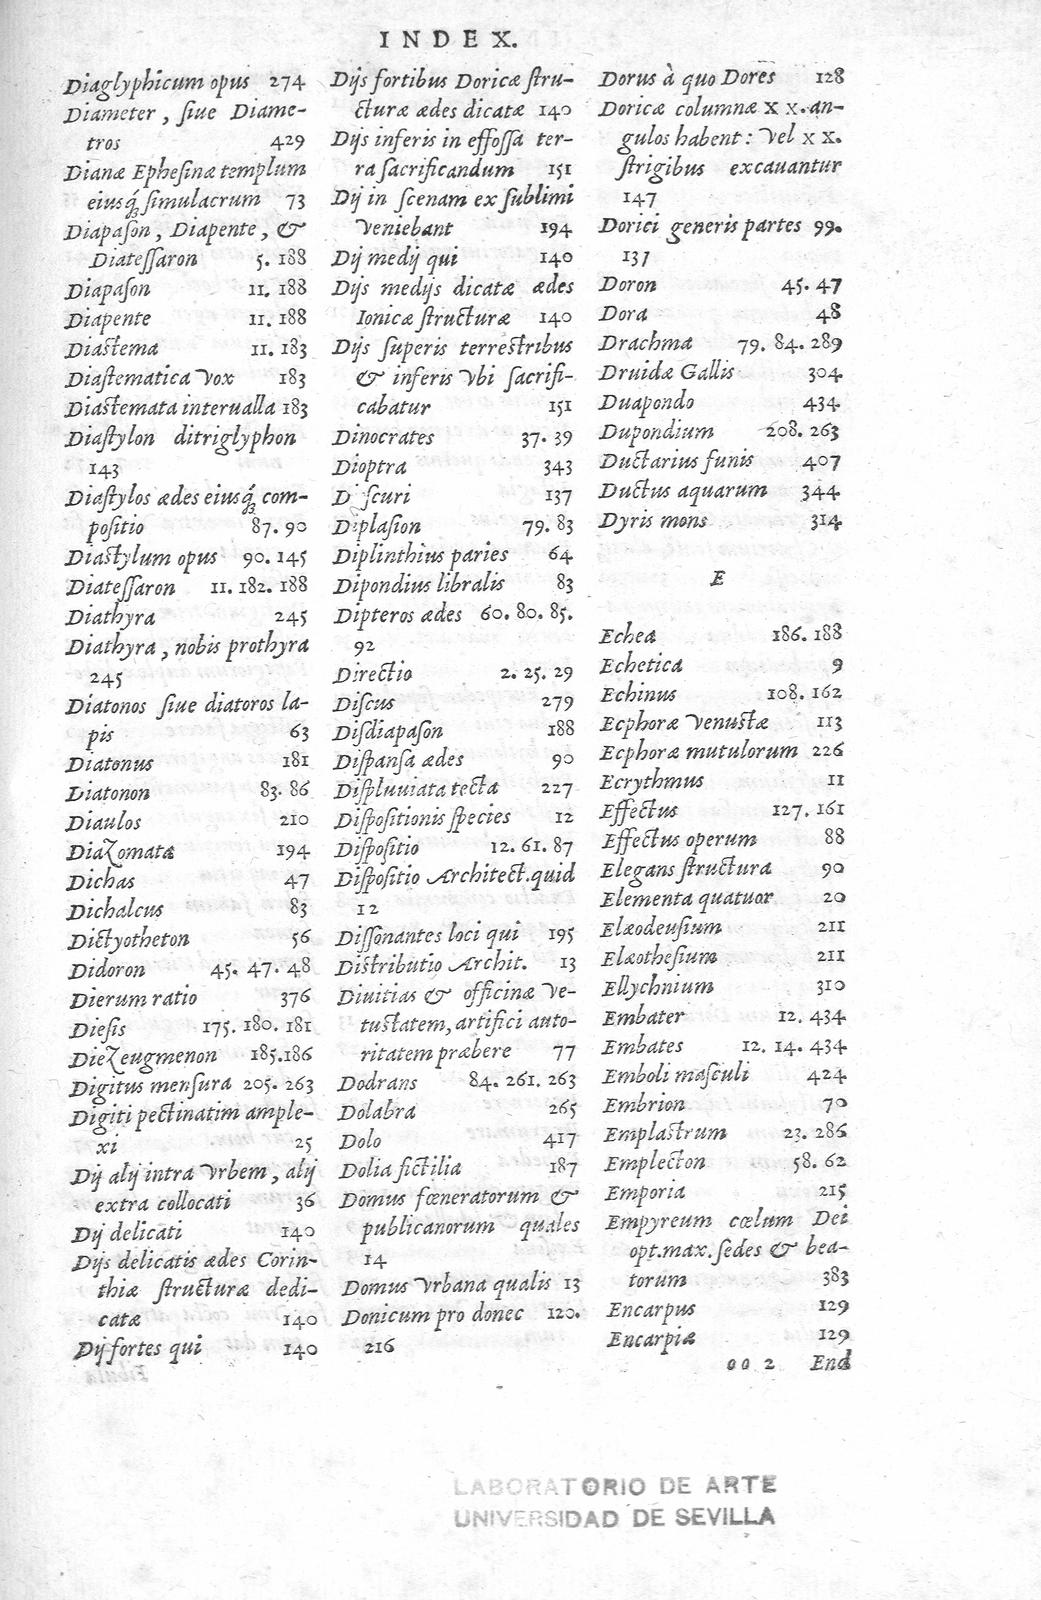 INDEX.
Diaglyphicum opus 274
Diameter, siue Diame-
tros 429
Dianæ Ephesinæ templum
eiusq́; simulacrum 73
Diapason, Diapente, &
Diatessaron 5. 188
Diapason 11. 188
Diapente 11. 188
Diastema 11. 183
Diastematica vox 183
Diastemata interualla 183
Diastylon ditriglyphon
143
Diastylos ædes eiusq́; com-
positio 87. 90
Diastylum opus 90. 145
Diatessaron 11. 182. 188
Diathyra 245
Diathyra, nobis prothyra
245
Diatonos siue diatoros la-
pis 63
Diatonus 181
Diatonon 83. 86
Diaulos 210
Diazomatæ 194
Dichas 47
Dichalcus 83
Dictyotheton 56
Didoron 45. 47. 48
Dierum ratio 376
Diesis 175. 180. 181
Diezeugmenon 185.186
Digitus mensura 205. 263
Digiti pectinatim ample-
xi 25
Dij alij intra vrbem, alij
extra collocati 36
Dij delicati 140
Dijs delicatis ædes Corin-
thiæ structuræ dedi-
catæ 140
Dij fortes qui 140
Dijs fortibus Doricæ stru-
cturæ ædes dicatæ 140
Dijs inferis in effossa ter-
ra sacrificandum 151
Dij in scenam ex sublimi
veniebant 194
Dij medij qui 140
Dijs medijs dicatæ ædes
Ionicæ structuræ 140
Dijs superis terrestribus
& inferis vbi sacrifi-
cabatur 151
Dinocrates 37. 39
Dioptra 343
D scuri 137
Diplasion 79. 83
Diplinthius paries 64
Dipondius libralis 83
Dipteros ædes 60. 80. 85.
92
Directio 2. 25. 29
Discus 279
Disdiapason 188
Dispansa ædes 90
Displuuiata tecta 227
Dispositionis species 12
Dispositio 12. 61. 87
Dispositio Architect.quid
12
Dissonantes loci qui 195
Distributio Archit. 13
Diuitias & officinæ ve-
tustatem, artifici auto-
ritatem præbere 77
Dodrans 84. 261. 263
Dolabra 265
Dolo 417
Dolia fictilia 187
Domus fœneratorum &
publicanorum quales
14
Domus vrbana qualis 13
Donicum pro donec 120.
216
Dorus à quo Dores 128
Doricæ columnæ XX. an-
gulos habent: vel XX.
strigibus excauantur
147
Dorici generis partes 99.
137
Doron 45. 47
Dora 48
Drachma 79. 84. 289
Druidæ Gallis 304
Duapondo 434
Dupondium 208. 263
Ductarius funis 407
Ductus aquarum 344
Dyris mons 314
E
Echea 186. 188
Echetica 9
Echinus 108. 162
Ecphoræ venustæ 113
Ecphoræ mutulorum 226
Ecrythmus 11
Effectus 127. 161
Effectus operum 88
Elegans structura 90
Elementa quatuor 20
Elæodeusium 211
Elæothesium 211
Ellychnium 310
Embater 12. 434
Embates 12. 14. 434
Emboli masculi 424
Embrion 70
Emplastrum 23. 286
Emplecton 58. 62
Emporia 215
Empyreum cœlum Dei
opt.max.sedes & bea-
torum 383
Encarpus 129
Encarpiæ 129
oo 2 End
LABORATORIO DE ARTE
UNIVERSIDAD DE SEVILLA